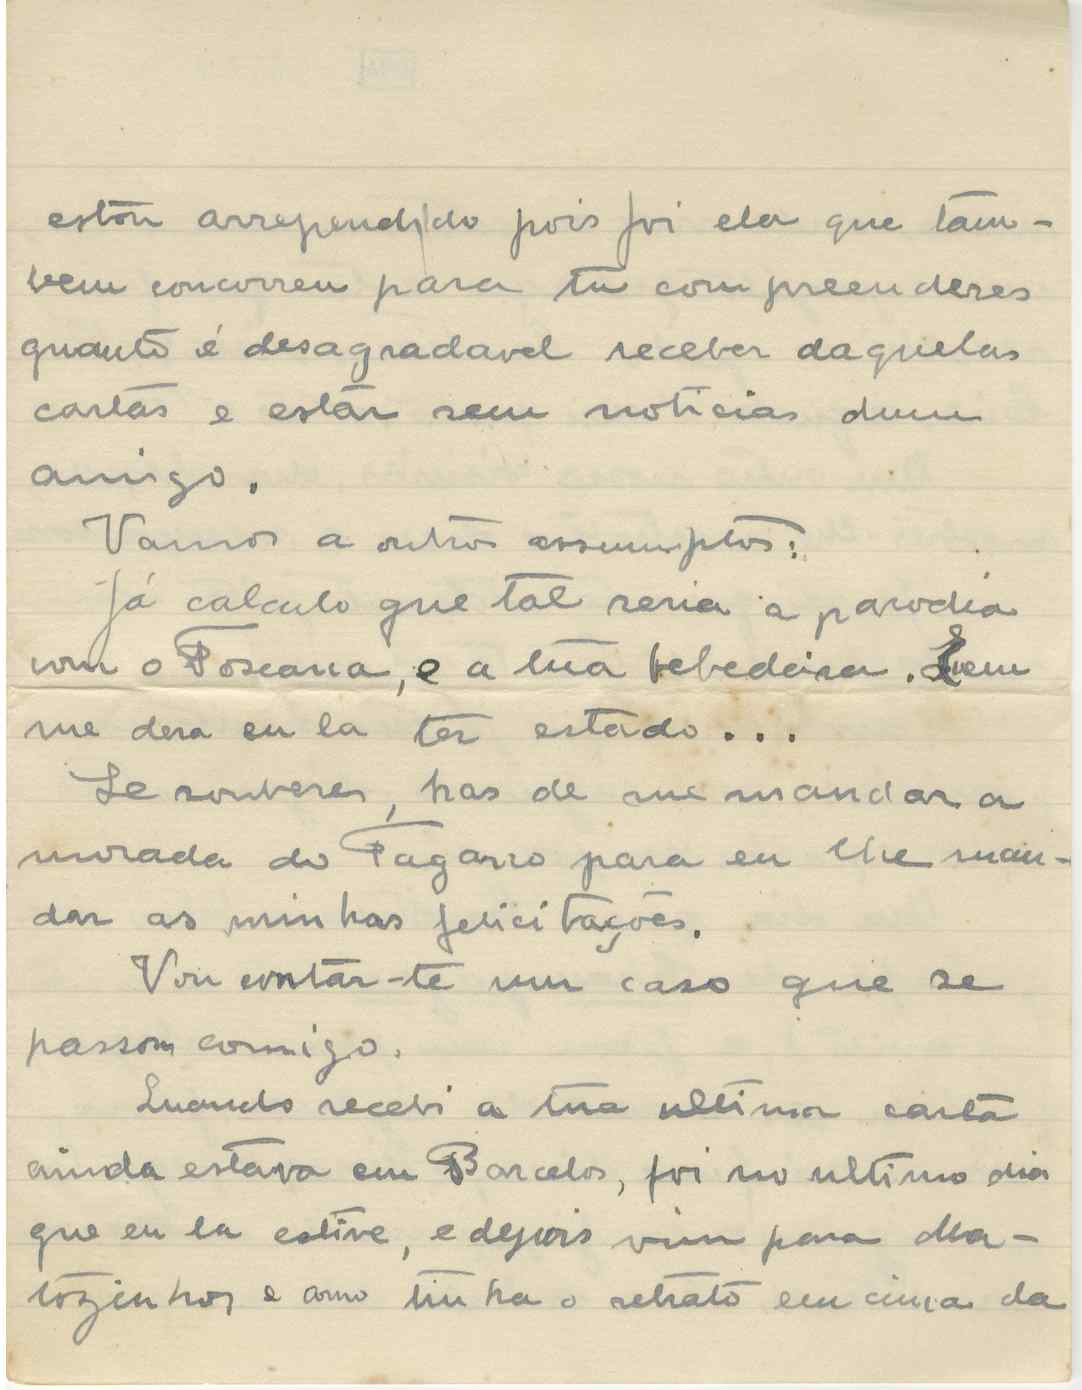 estou arrependido pois foi ela que tam-
bem concorreu para tu compreenderes
quanto é desagradavel receber daquelas
cartas e estar sem noticias dum
amigo.
Vamos a outros assumptos:
Já calculo que tal seria a parodia
com o Toscana, e a tua bebedeira. Quem
me dera eu la ter estado...
Se souberes, has de me mandar a
morada do Fagarro para eu lhe man-
dar as minhas felicitações.
Vou contar-te um caso que se
passou comigo.
Quando recebi a tua ultima carta
ainda estava em Barcelos, foi no ultimo dia
que eu la estive, e depois vim para Ma-
tozinhos e como tinha o retrato em cima da